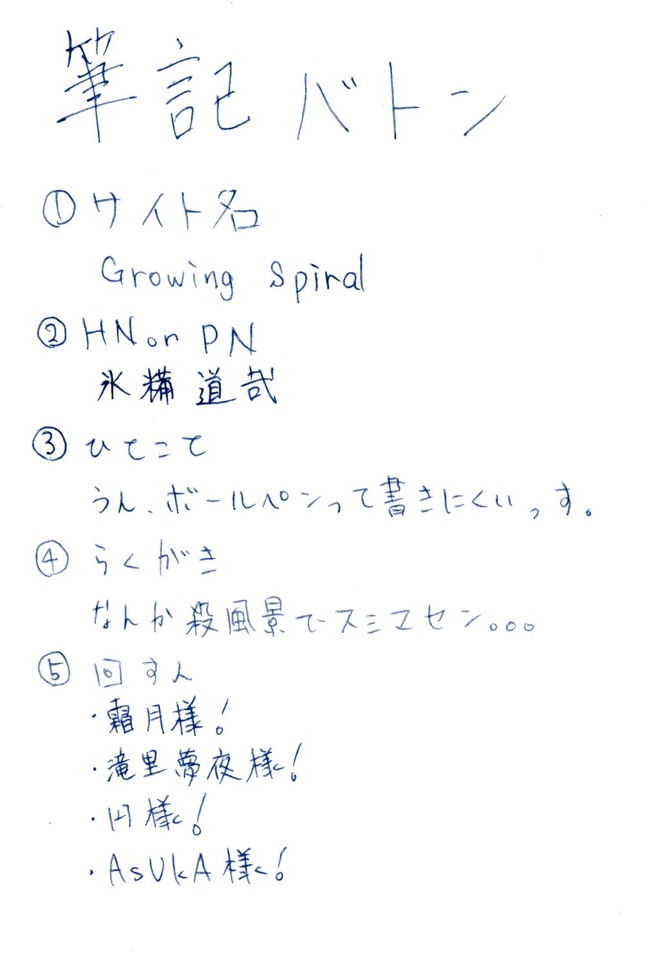 筆記バトン
①サイト名
Growing Spiral
②HN or PN
氷構道哉
③ひとこと
うん、ボールペンって書きにくいっす。
④らくがき
なんか殺風景でスミマセン。。。
⑤回す人
・霜月様!
・滝里夢夜様!
・円様!
・AsUkA様!